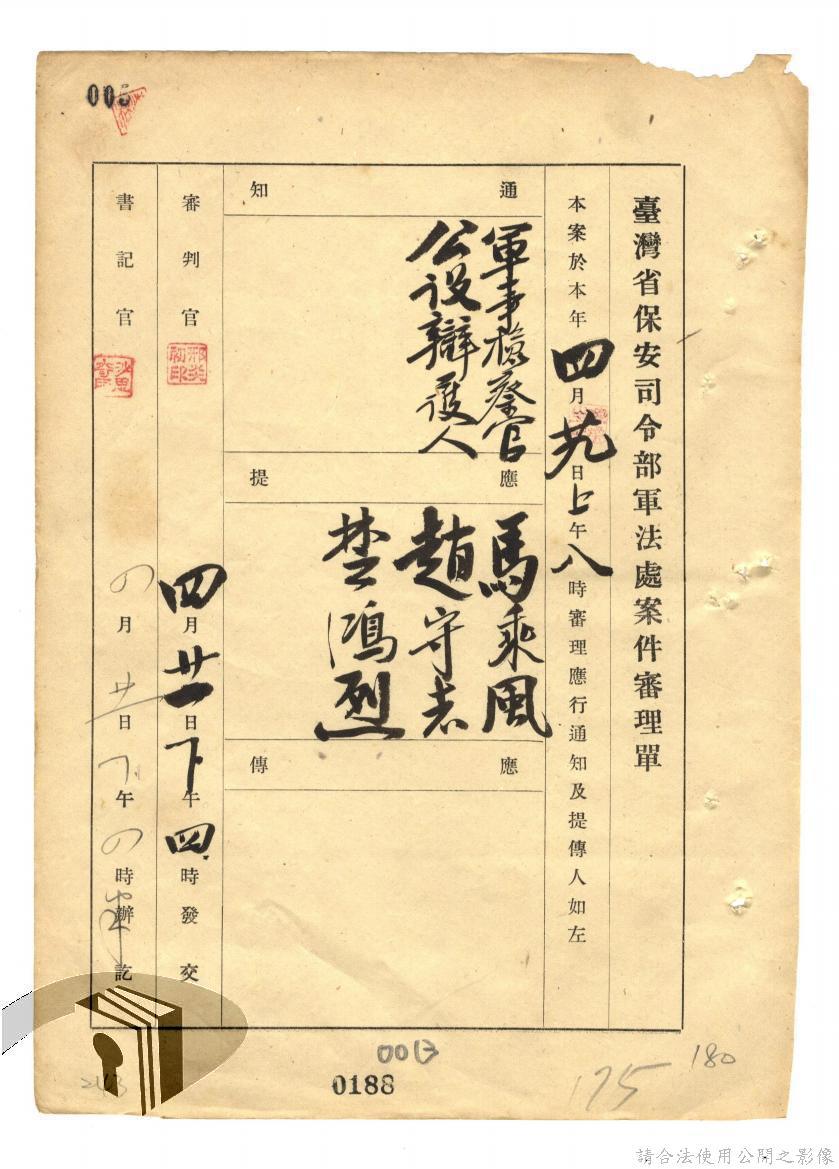 臺灣省保安司令部軍法處案件審理單
本案於本年四月廿九日上午八時審理應行通知及提傳人如左
通知
軍事檢察官
公设辯護人
應提
馬乘風
趙守志
楚鴻烈
應傳
審判官
四月廿一日下午四時發交
書記官
四月廿一日下午四時辦訖
005
0013
0188
175
180
243
請合法使用公開之影像